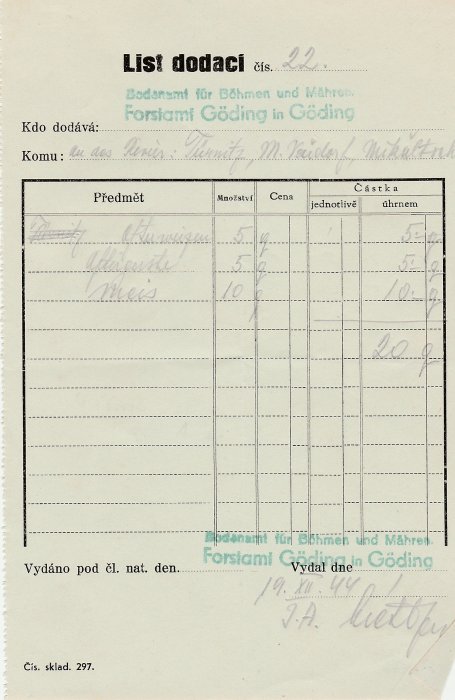 List dodací čís. 22.
Bodenamt für Böhmen und Mähren.
Forstamt Göding in Göding
Kdo dodává:
Komu: an das Revier: M.
Předmět Množství Cena Částka
jednotlivě úhrnem
5 q 5.- q
5 q 5.- q
Mais 10 q 10.- q
20 q
Bodenamt für Böhmen und Mähren.
Forstamt Göding in Göding
Vydáno pod čl. nat. den. Vydal dne
19. XII. 44
I.A.
Čís. sklad. 297.